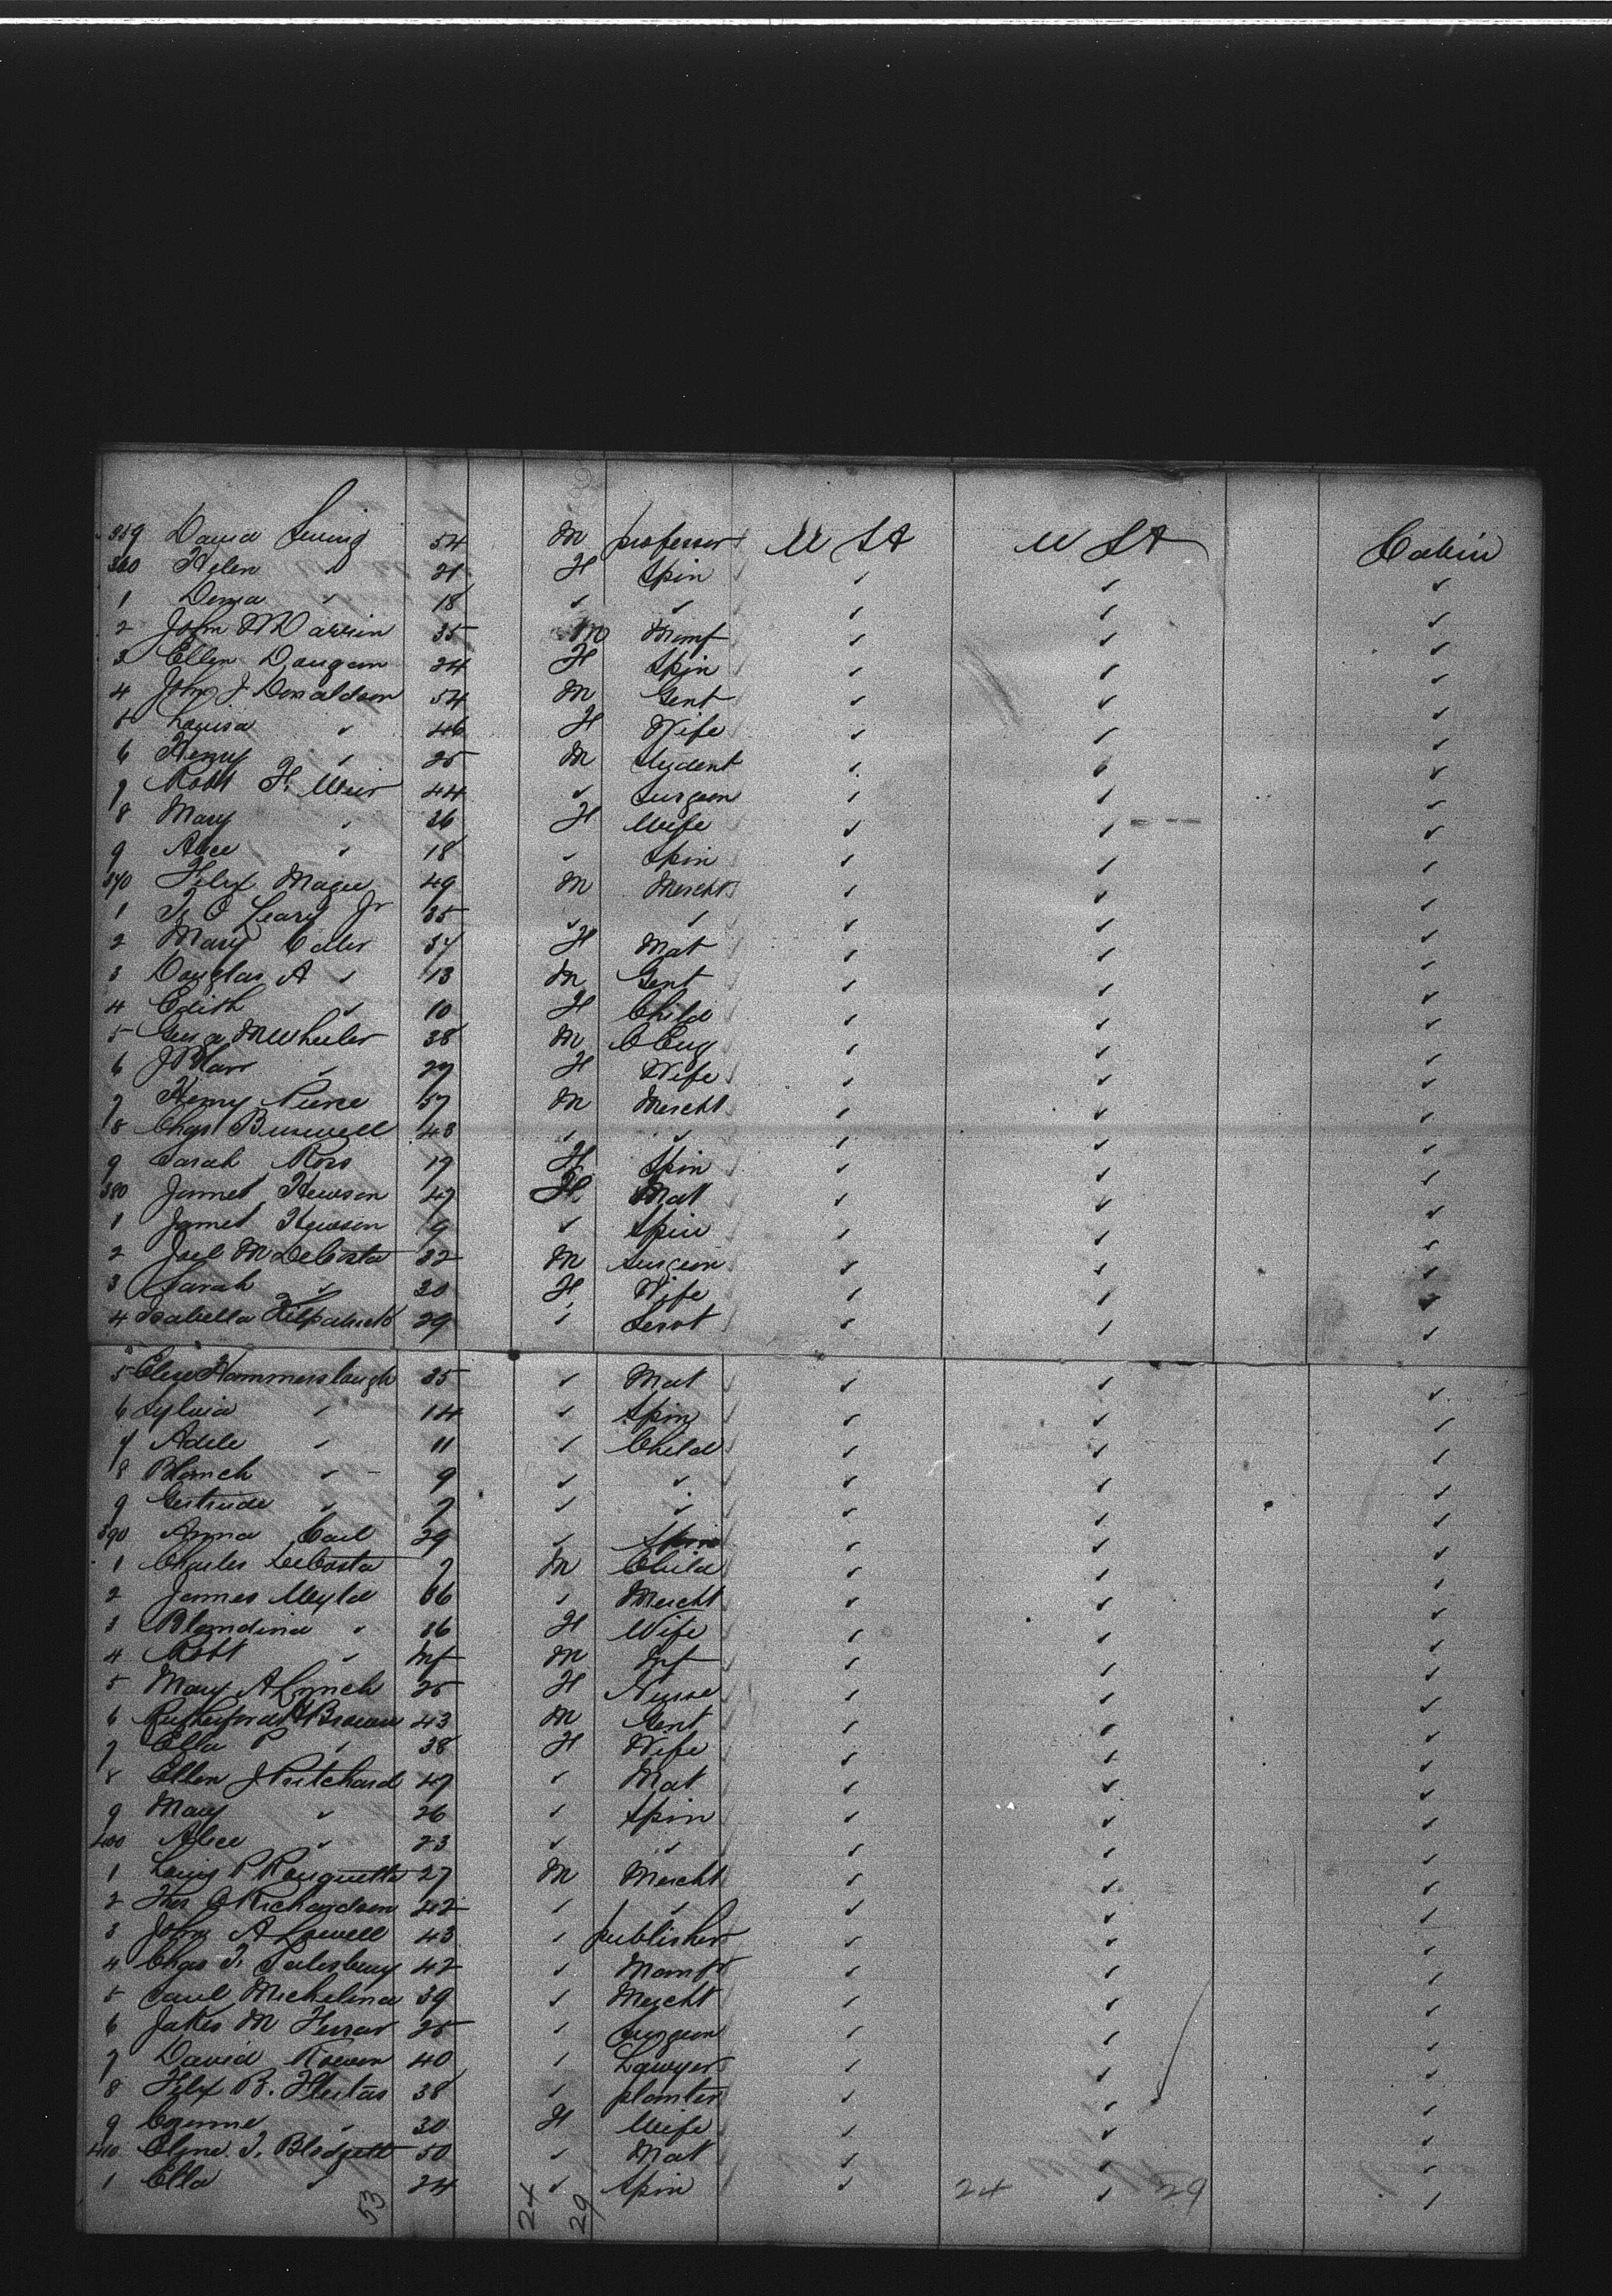 359 David Swing 54 M professor U St U St Cabin
360 Helen ✓ 21 F Spin ✓ ✓ ✓
1 Dema ✓ 18 ✓ ✓ ✓ ✓ ✓
2 John M 35 M Manf ✓ ✓ ✓
3 Ellen 24 F Spin ✓ ✓ ✓
4 John J Donaldson 54 M Gent ✓ ✓ ✓
5 Louisa ✓ 46 F Wife ✓ ✓ ✓
6 Henry ✓ 25 M Student ✓ ✓ ✓
7 Robt F. Weir 44 ✓ Surgeon ✓ ✓ ✓
8 Mary ✓ 36 F Wife ✓ ✓ ✓
9 Alice ✓ 18 ✓ Spin ✓ ✓ ✓
370 Felix Magee 49 M Mercht ✓ ✓ ✓
1 T. O Leary Jr 35 ✓ ✓ ✓ ✓ ✓
2 Mary 37 F Mat ✓ ✓ ✓
3 Douglas A ✓ 13 M Gent ✓ ✓ ✓
4 Edith ✓ 10 F Child ✓ ✓ ✓
5 M Wheeler 38 M C Eng ✓ ✓ ✓
6 ✓ 27 F Wife ✓ ✓ ✓
7 Henry Pierce 57 M Mercht ✓ ✓ ✓
8 Chas Burwell 48 ✓ ✓ ✓ ✓ ✓
9 Sarah Ross 19 F Spin ✓ ✓ ✓
380 Jannet Hewson 47 F Mat ✓ ✓ ✓
1 Jannet Hewson 9 ✓ Spin ✓ ✓ ✓
2 Joel M DeCosta 32 M Surgeon ✓ ✓ ✓
3 Sarah ✓ 30 F Wife ✓ ✓ ✓
4 Isabella Kilpatrick 29 ✓ Servt ✓ ✓ ✓
5 Elise Hammerslaugh 35 ✓ Mat ✓ ✓ ✓
6 Sylvia ✓ 14 ✓ Spin ✓ ✓ ✓
7 Adele ✓ 11 ✓ Child ✓ ✓ ✓
8 Blanch ✓ 9 ✓ ✓ ✓ ✓ ✓
9 Gertrude ✓ 7 ✓ ✓ ✓ ✓ ✓
390 Anna Carl 29 ✓ Spin ✓ ✓ ✓
1 Charles DeCosta 7 M Child ✓ ✓ ✓
2 James Weyld 36 ✓ Mercht ✓ ✓ ✓
3 Blandina ✓ 36 F Wife ✓ ✓ ✓
4 Robt ✓ Inf M Inf ✓ ✓ ✓
5 Mary A Lynch 25 F Nurse ✓ ✓ ✓
6 Rutherford H Brown 43 M Gent ✓ ✓ ✓
7 Ella P ✓ 38 F Wife ✓ ✓ ✓
8 Ellen J Pritchard 47 ✓ Mat ✓ ✓ ✓
9 Mary ✓ 26 ✓ Spin ✓ ✓ ✓
400 Alice ✓ 23 ✓ ✓ ✓ ✓ ✓
1 Louis P Rouquette 27 M Mercht ✓ ✓ ✓
2 Thos Richardson 42 ✓ ✓ ✓ ✓ ✓
3 John A Lowell 43 ✓ publisher ✓ ✓ ✓
4 Chas T. Salesbury 42 ✓ Manfr ✓ ✓ ✓
5 Paul Michelina 39 ✓ Mercht ✓ ✓ ✓
6 M 25 ✓ Surgeon ✓ ✓ ✓
7 David Rowen 40 ✓ Lawyer ✓ ✓ ✓
8 Felix B. Fleitas 38 ✓ planter ✓ ✓ ✓
9 ✓ 30 F Wife ✓ ✓ ✓
410 T. Blodgett 50 ✓ Mat ✓ ✓ ✓
1 Ella ✓ 24 ✓ Spin ✓ ✓ ✓
53 24 29 24 29